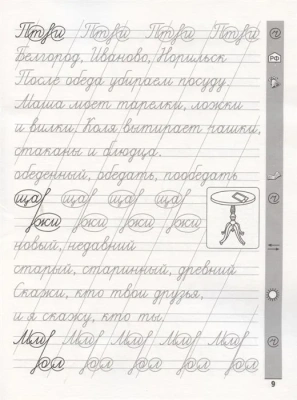 Птузи Птузи Птузи Птузи
Белгород, Иваново, Норильск
После обеда убираем посуду.
Маша моет тарелки, ложки
и вилки. Коля вытирает чашки,
стаканы и блюдца.
обеденный, обедать, пообедать
ща ща ща ща
жи жи жи жи
новый, недавний
старый, старинный, древний
Скажи, кто твои друзья,
и я скажу, кто ты.
РФ
9